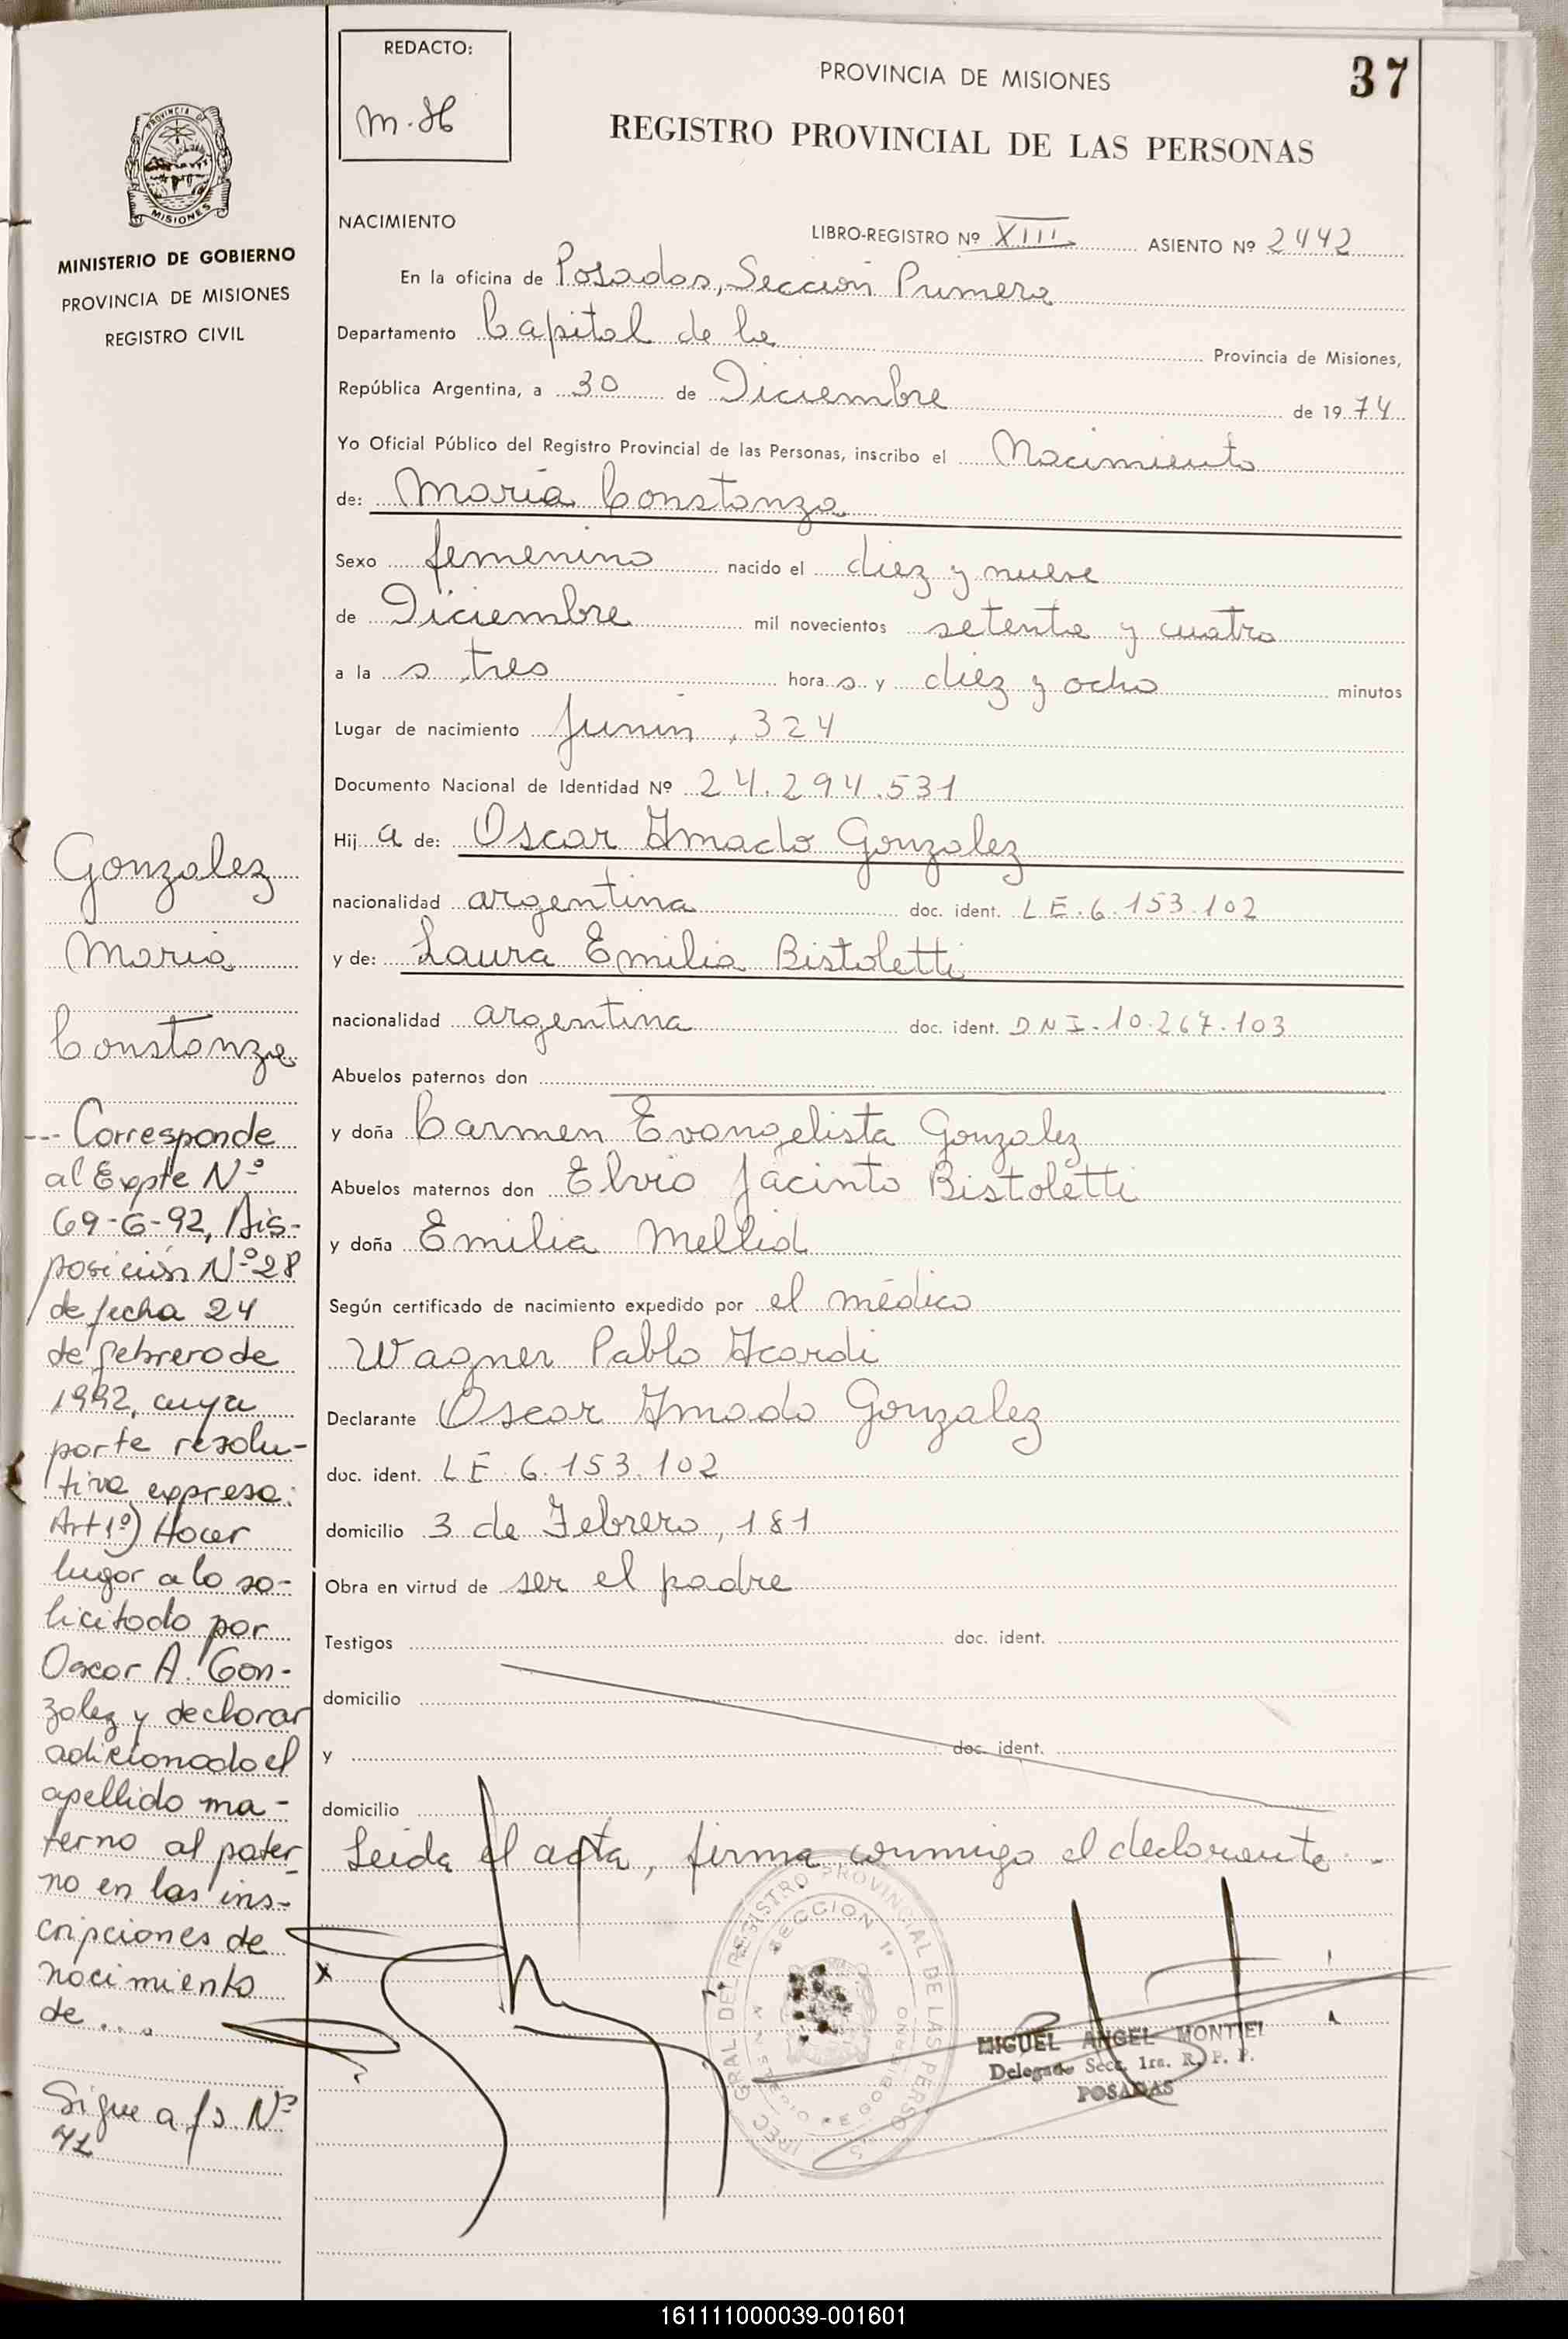 REDACTO:
M.H
PROVINCIA DE MISIONES
37
REGISTRO PROVINCIAL DE LAS PERSONAS
PROVINCIA DE
MISIONES
MINISTERIO DE GOBIERNO
PROVINCIA DE MISIONES
REGISTRO CIVIL
NACIMIENTO
LIBRO-REGISTRO Nº XIII ASIENTO Nº 2442
En la oficina de Posadas, Sección Primera
Departamento Capital de la Provincia de Misiones,
República Argentina, a 30 de Diciembre de 1974
Yo Oficial Público del Registro Provincial de las Personas, inscribo el Nacimiento
de: María Constanza
Sexo femenino nacido el diez y nueve
de Diciembre mil novecientos setenta y cuatro
a la s tres hora s y diez y ocho minutos
Lugar de nacimiento Junín, 324
Documento Nacional de Identidad Nº 24.294.531
Hij a de: Oscar Amado Gonzalez
nacionalidad argentina doc. ident. LE.6.153.102
y de: Laura Emilia Bistoletti
nacionalidad argentina doc. ident. DNI.10.267.103
Abuelos paternos don
y doña Carmen Evangelista Gonzalez
Abuelos maternos don Elvio Jacinto Bistoletti
y doña Emilia Mellid
Según certificado de nacimiento expedido por el médico
Wagner Pablo Acardi
Declarante Oscar Amado Gonzalez
doc. ident. LE.6.153.102
domicilio 3 de Febrero, 181
Obra en virtud de ser el padre
Testigos doc. ident.
domicilio
y doc. ident.
domicilio
Leida el acta, firma conmigo el declarante.-
x
SECCION 1ª
MIGUEL ANGEL MONTIEL
Delegado Secc. 1ra. R. P. P.
POSADAS
Gonzalez
Maria
Constanza
--- Corresponde
al Expte Nº
69-G-92, Dis-
posición Nº 28
de fecha 24
de febrero de
1992, cuya
parte resolu-
tiva expresa:
Art 1º) Hacer
lugar a lo so-
licitado por
Oscar A. Gon-
zalez y declarar
adicionado el
apellido ma-
terno al pater-
no en las ins-
cripciones de
nacimiento
de...
Sigue a fs. Nº
41
161111000039-001601